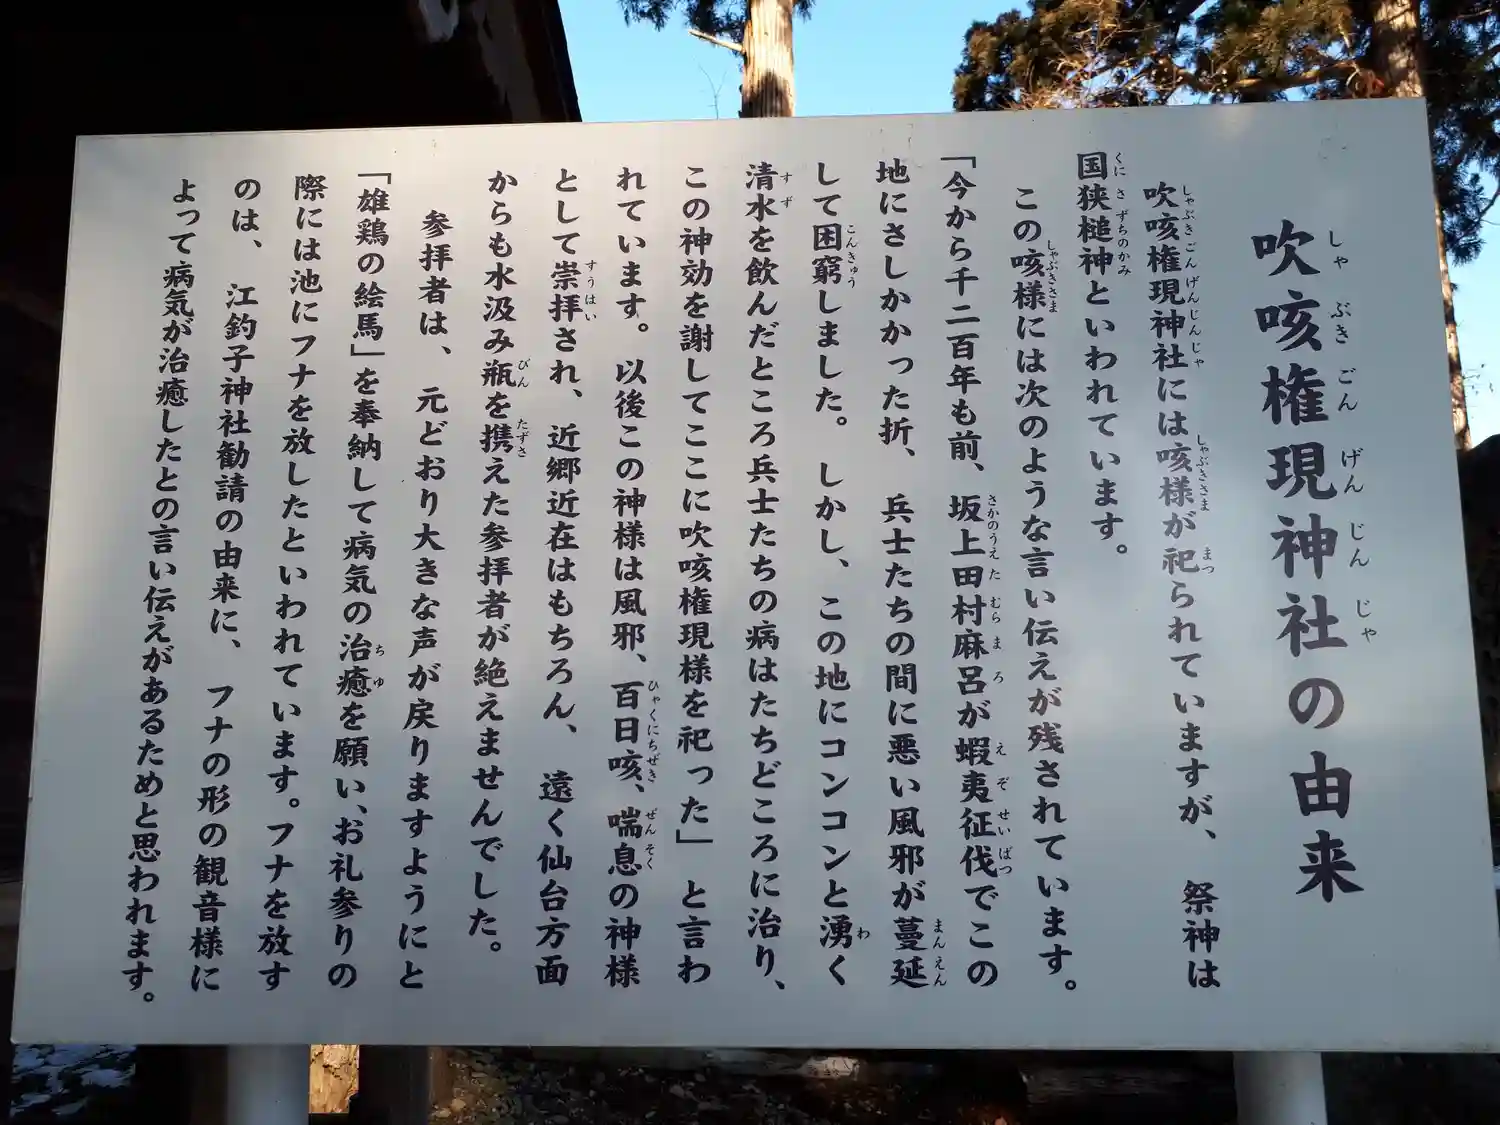 吹咳権現神社の由来
吹咳権現神社には咳様が祀られていますが、祭神は
国狭槌神といわれています。
この咳様には次のような言い伝えが残されています。
「今から千二百年も前、坂上田村麻呂が蝦夷征伐でこの
地にさしかかった折、兵士たちの間に悪い風邪が蔓延
して困窮しました。しかし、この地にコンコンと湧く
清水を飲んだところ兵士たちの病はたちどころに治り、
この神効を謝してここに吹咳権現様を祀った」と言わ
れています。以後この神様は風邪、百日咳、喘息の神様
として崇拝され、近郷近在はもちろん、遠く仙台方面
からも水汲み瓶を携えた参拝者が絶えませんでした。
参拝者は、元どおり大きな声が戻りますようにと
「雄鶏の絵馬」を奉納して病気の治癒を願い、お礼参りの
際には池にフナを放したといわれています。フナを放す
のは、江釣子神社勧請の由来に、フナの形の観音様に
よって病気が治癒したとの言い伝えがあるためと思われます。